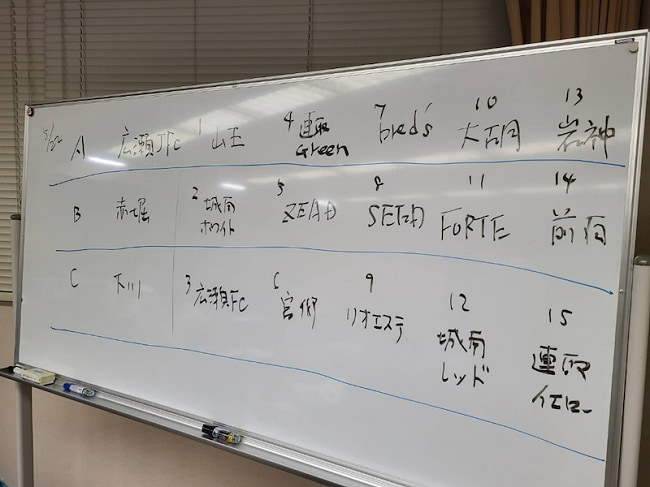 5/22
A 広瀬JFC 1 山王 4 連取 Green 7 bred's 10 大胡 13 岩神
B 赤堀 2 城南 ホワイト 5 ZEAD 8 11 FORTE 14 前南
C 下川 3 広瀬FC 6 宮郷 9 リオエステ 12 城南 レッド 15 連取 イエロー